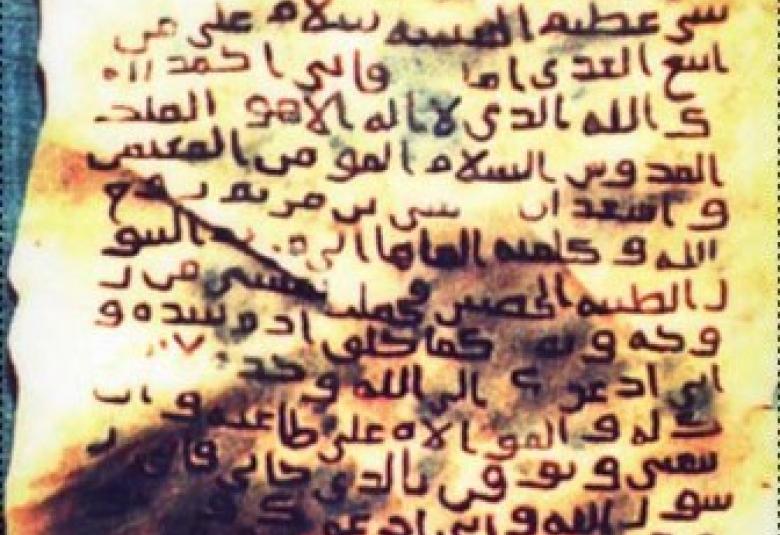 شي عظيم الحبشه سلام على من
اتبع الهدى اما فاني احمد الي
ك الله الذي لا اله الا هو الملك
القدوس السلام المومن المهيمن
و اشهد ان عيسى بن مريم روح
الله و كلمته القاها الى البتو
ل الطيبه الحصينه فحملت بعيسى من ر
وحه و نفخه كما خلق ادم بيده و
اني ادعوك الى الله وحده
ك له و الموالاه على طاعته و ان
تتبعني و توقن بالذي جاني فاني ر
سول الله و اني ادعوك